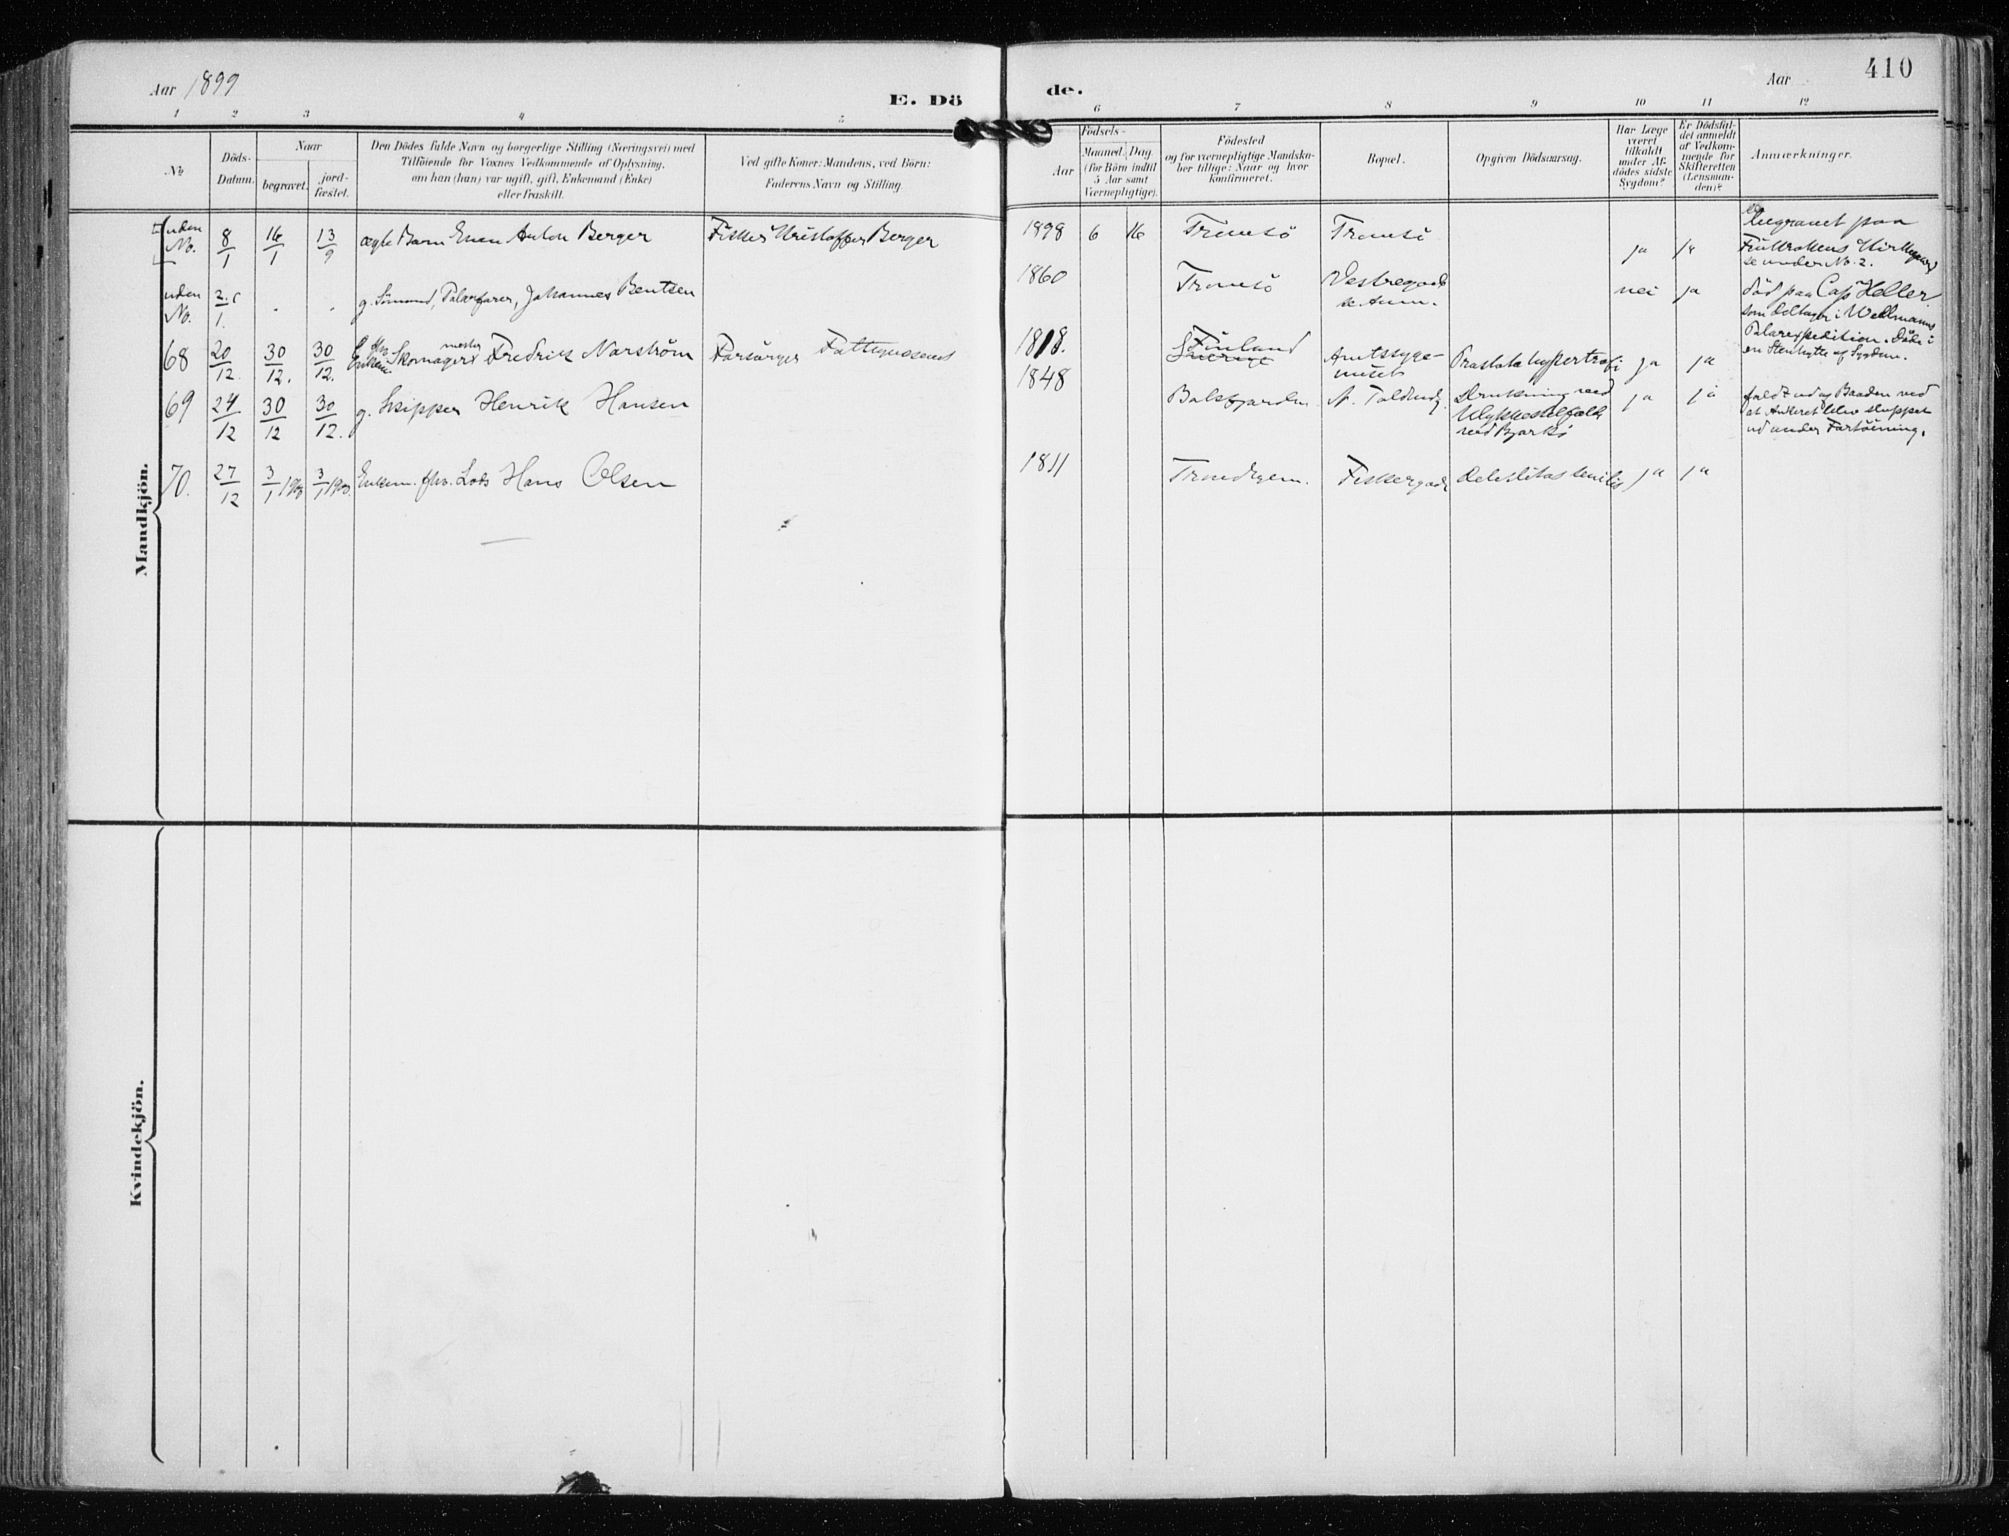 Aar 1899
E. Dö
de.
Aar
410
1 2 3 4 5 6 7 8 9 10 11 12
No
Döds-
Datum.
Naar
begravet.
jord-
fæstet.
Den Dödes fulde Navn og borgerlige Stilling (Næringsvei) med
Tilföiende for Voxnes Vedkommende af Oplysning,
om han (hun) var ugift, gift, Enkemand (Enke)
eller fraskilt.
Ved gifte Koner: Mandens, ved Börn:
Faderens Navn og Stilling
Födsels-
Aar
Maaned. Dag
(for Börn indtil
5 Aar samt
Værnepligtige).
Födested
og for værnepligtige Mandska-
ber tillige: Naar og hvor
konfirmeret.
Bopæl.
Opgiven Dödsaarsag.
Har Læge
været
tilkaldt
under Af-
dödes sidste
Sygdom?
Er Dödsfal-
det anmeldt
af Vedkom-
mende for
Skifteretten
(Lensman-
den)?
Anmærkninger.
Mandkjön.
uden No. 8/1 16/1 13/9 ægte Barn Even Anton Berger Fisker Kristoffer Berger 1898 6 16 Tromsö Tromsö ja ja
begravet paa
se under No. 2.
uden No. 2/1 g. Sömand, Polarfarer, Johannes Bentsen 1860 Tromsö Vestregade se Anm. nei ja
död paa Cap Heller
som deltager i Wellmanns
Polarexpedition. Döde i
en Stenhytte af Sygdom.
68 20/12 30/12. 30/12. Enkem. fhv. Skomagermester Fredrik Norström Forsörges Fattigvæsenet 1818. Finland Sverige Amtssyge-
huset Prostatahypertrofi ja ja
69 24/12 30/12 30/12. g. Skipper Henrik Hansen 1848 Balsfjorden N. Toldbodg. Drukning ved
Ulykkestilfælde
ved Bjarkö ja ja
faldt ud af Baaden ved
at Ankeret blev sluppet
ud under Fortöining.
70. 27/12 3/1 1900 3/1 1900 Enkem. fhv. Lods Hans Olsen 1811 Trondhjem. Fiskergade Debilitas senilis ja ja
Kvindekjön.